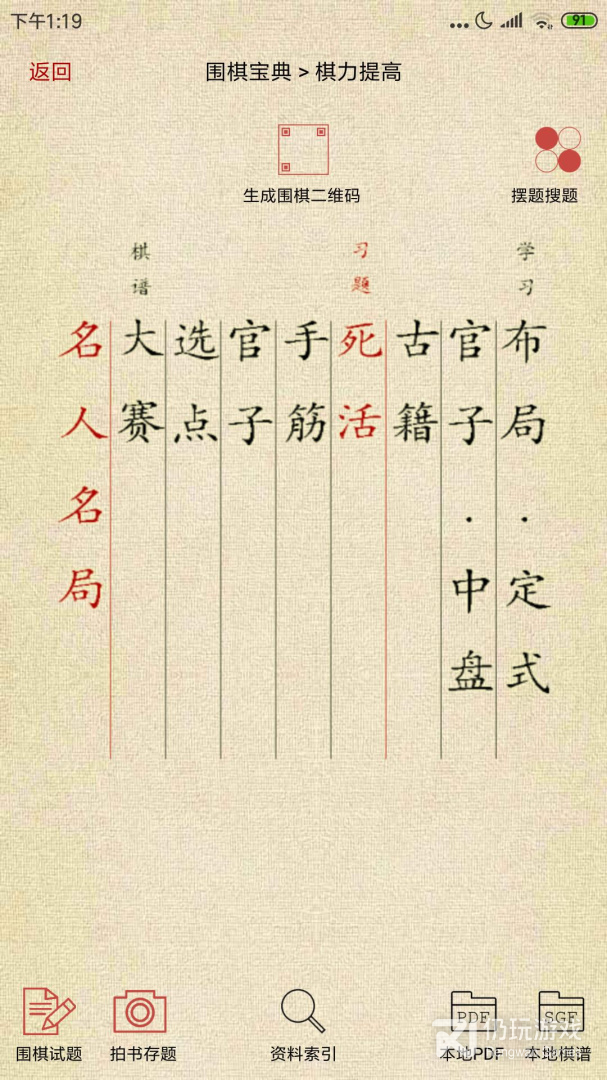 下午1:19
91
返回
围棋宝典 > 棋力提高
生成围棋二维码
摆题搜题
学习
布局·定式
官子·中盘
古籍
习题
死活
手筋
官子
选点
棋谱
大赛
名人名局
围棋试题
拍书存题
资料索引
PDF
本地PDF
SGF
本地棋谱
仍玩游戏